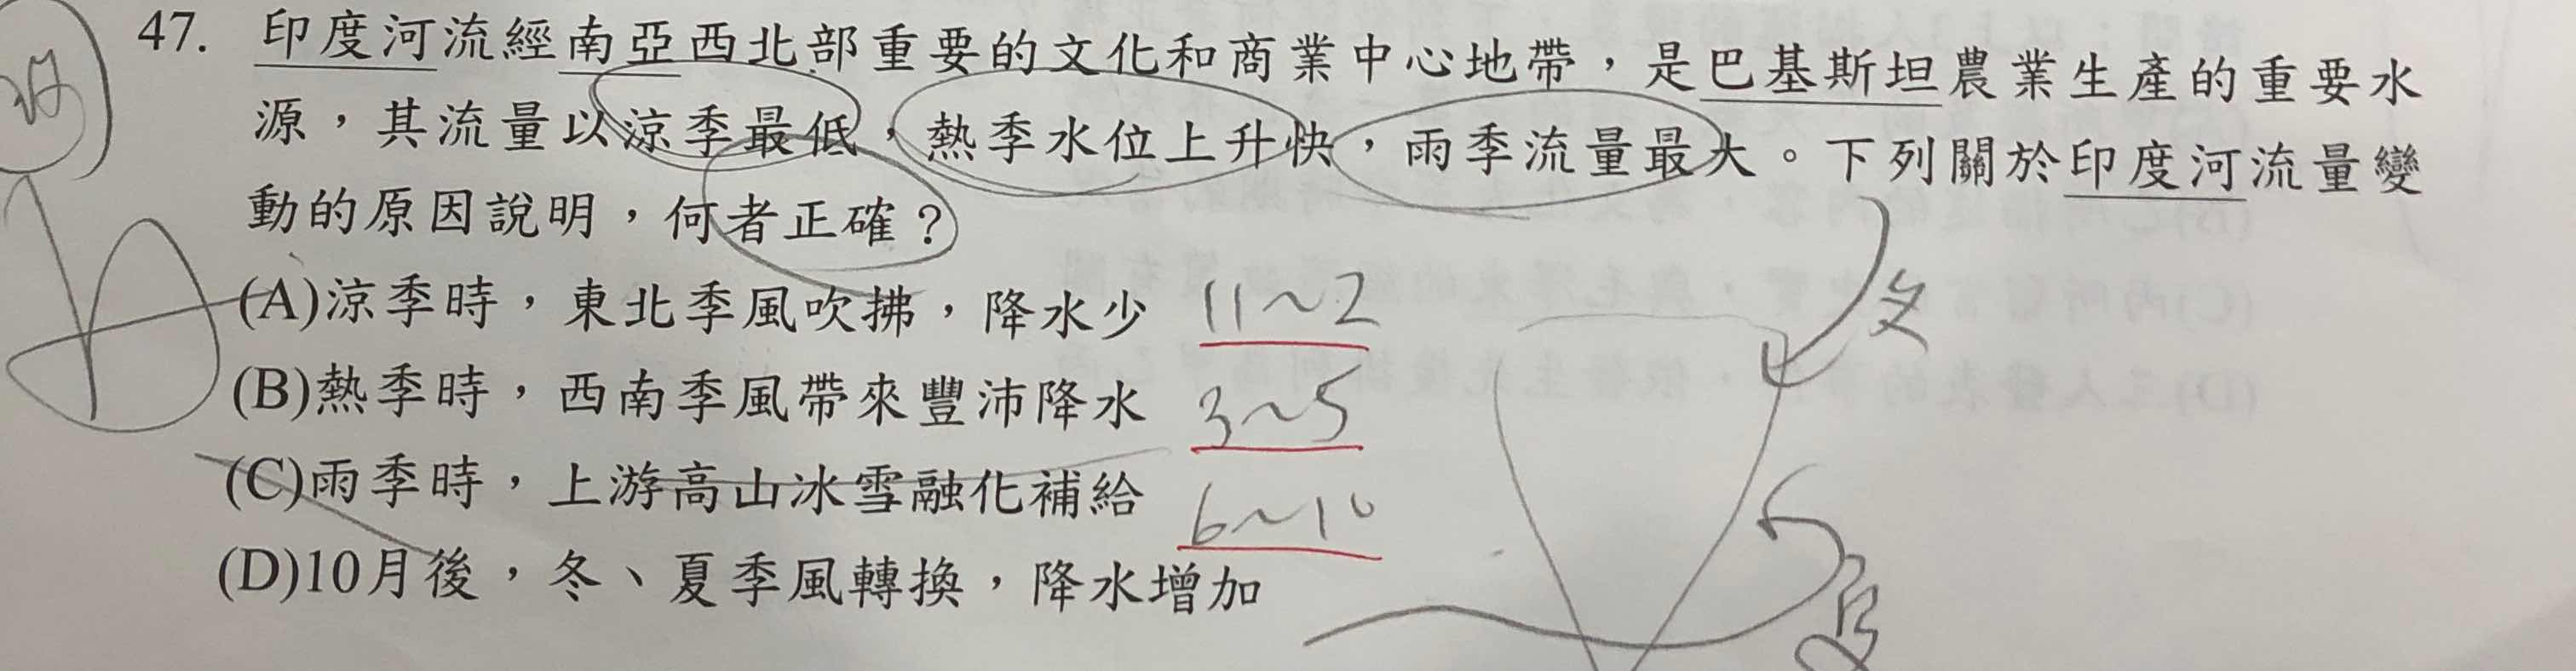 47. 印度河流經南亞西北部重要的文化和商業中心地帶，是巴基斯坦農業生產的重要水
源，其流量以涼季最低，熱季水位上升快，雨季流量最大。下列關於印度河流量變
動的原因說明，何者正確？
(A)涼季時，東北季風吹拂，降水少 11～2
(B)熱季時，西南季風帶來豐沛降水 3～5
(C)雨季時，上游高山冰雪融化補給 6～10
(D)10月後，冬、夏季風轉換，降水增加